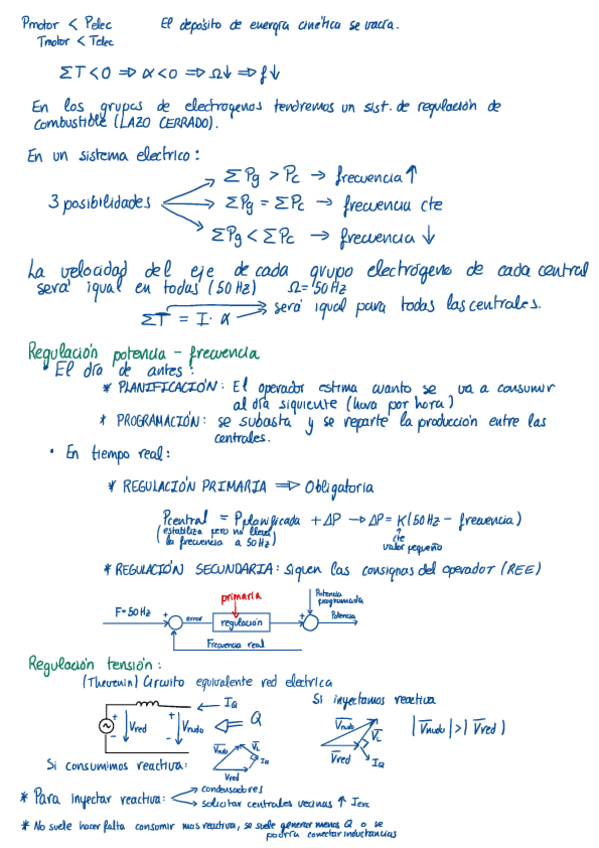 Pmotor < Pelec   El depósito de energía cinética se vacía.
Tmotor < Telec
ΣT<0 ⇒ α<0 ⇒ Ω↓ ⇒ f↓
En los grupos de electrogenos tendremos un sist. de regulación de
combustible (LAZO CERRADO).
En un sistema electrico:
ΣPg > Pc → frecuencia ↑
3 posibilidades   ΣPg = ΣPc → frecuencia cte
ΣPg < ΣPc → frecuencia ↓
La velocidad del eje de cada grupo electrógeno de cada central
será igual en todas (50 Hz)   Ω = 50 Hz
ΣT = I · α → será igual para todas las centrales.
Regulación potencia - frecuencia
• El día de antes:
* PLANIFICACIÓN: El operador estima cuanto se va a consumir
al día siguiente (hora por hora)
* PROGRAMACIÓN: se subasta y se reparte la producción entre las
centrales.
• En tiempo real:
* REGULACIÓN PRIMARIA ⇒ Obligatoria
Pcentral = Pplanificada + ΔP → ΔP = K(50 Hz - frecuencia)
(estabiliza pero no lleva   cte
la frecuencia a 50 Hz)   valor pequeño
* REGULACIÓN SECUNDARIA: Siguen las consignas del operador (REE)
primaria   Potencia
programada
F=50 Hz   +   error   regulación   +   +   Potencia
-
Frecuencia real
Regulación tensión:
(Thevenin) Circuito equivalente red electrica
Si inyectamos reactiva
← IQ
+ Vred -   + Vnudo -   ⇐ Q
Vnudo   VL   IQ   Vred
Vnudo   VL   Vred   IQ   |Vnudo| > |Vred|
Si consumimos reactiva:
* Para inyectar reactiva:   condensadores
solicitar centrales vecinas ↑ Iexc
* No suele hacer falta consumir mas reactiva, se suele generar menos Q o se
podría conectar inductancias